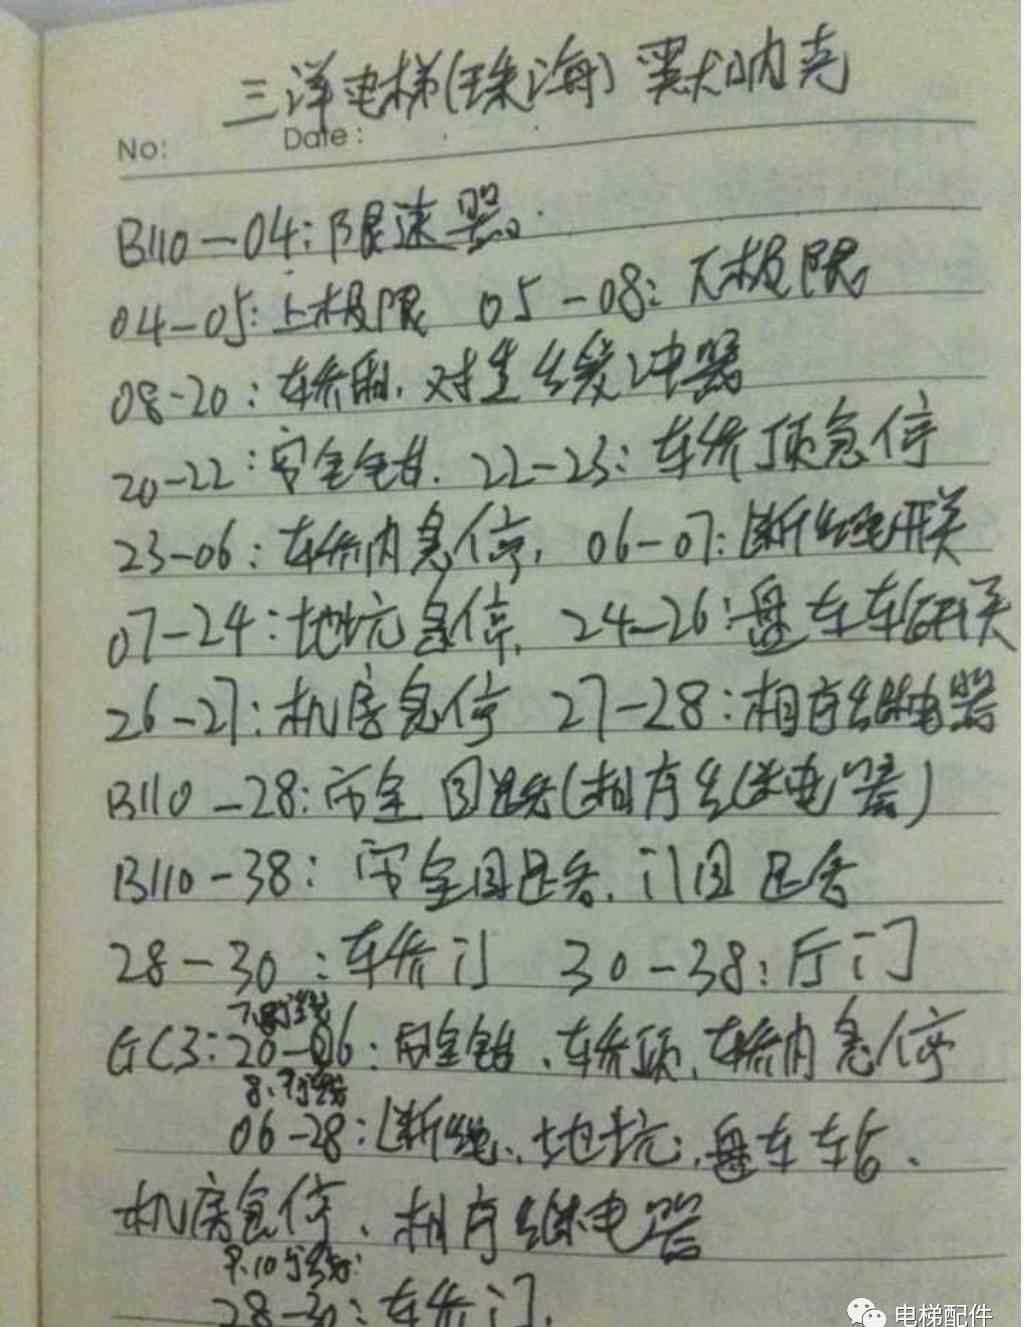 三洋电梯(珠海) 默纳克
No: Date:
B110-04:限速器。
04-05:上极限 05-08:下极限
08-20:轿厢,对重缓冲器
20-22:安全钳. 22-23:轿顶急停
23-06:轿内急停, 06-07:断绳开关
07-24:地坑急停, 24-26:盘车轮开关
26-27:机房急停 27-28:相序继电器
B110-28:安全回路(相序继电器)
B110-38:安全回路,门回路
28-30:轿门 30-38:厅门
GC3:20-06:安全钳、轿顶,轿内急停
06-28:断绳、地坑,盘车轮、
机房急停、相序继电器
28-30:轿门.
电梯配件